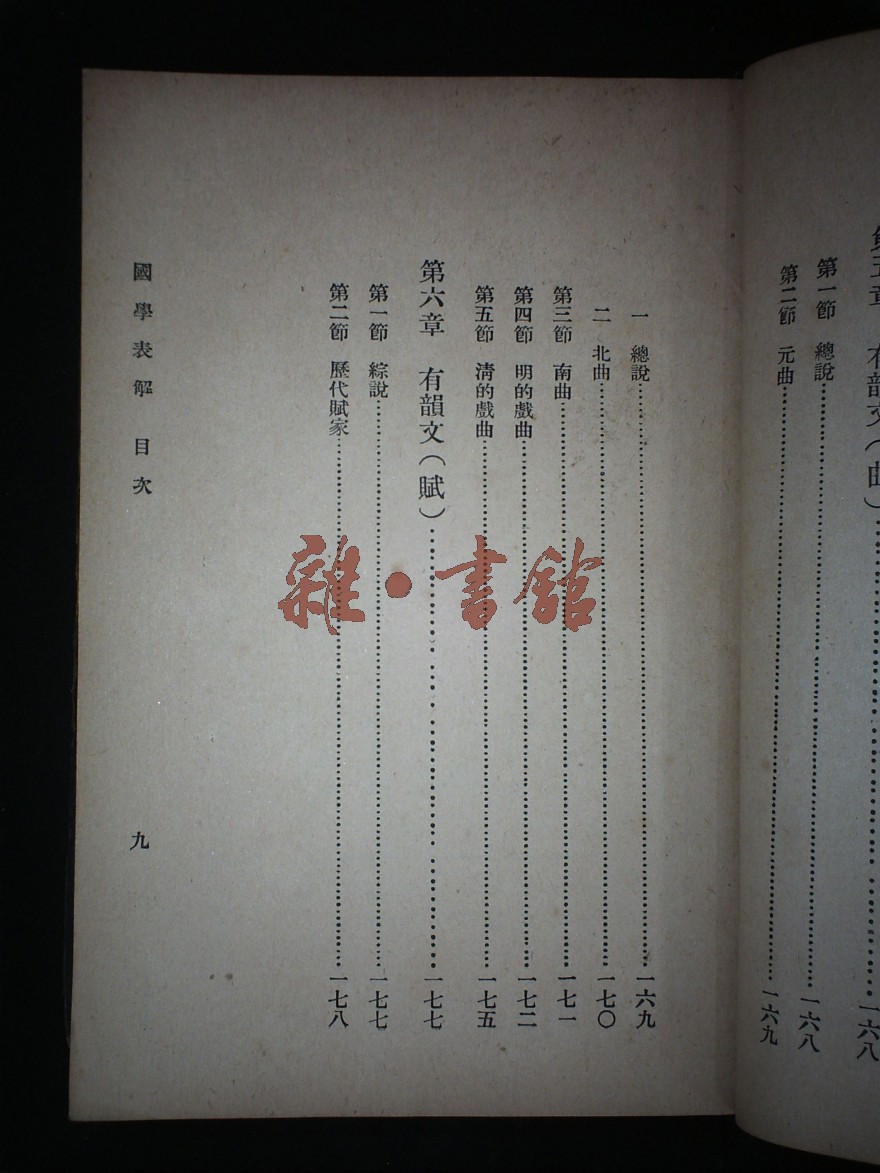 第五章　有韻文（曲）……一六八
第一節　總說……一六八
第二節　元曲……一六九
一　總說……一六九
二　北曲……一七〇
第三節　南曲……一七一
第四節　明的戲曲……一七二
第五節　清的戲曲……一七五
第六章　有韻文（賦）……一七七
第一節　綜說……一七七
第二節　歷代賦家……一七八
國學表解　目次
九
雜·書館